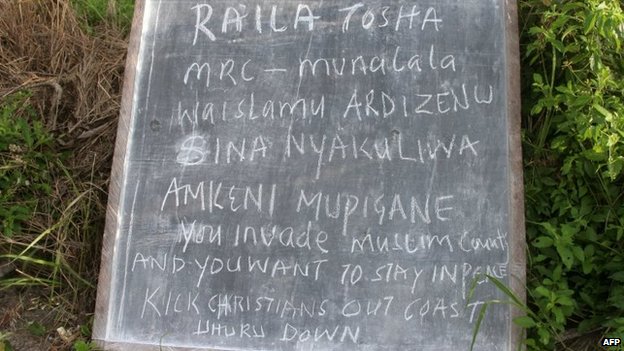 RAILA TOSHA
MRC - munalala
WAISLAMU ARDIZENU
SINA NYAKULIWA
AMKENI MUPIGANE
You invade muslim country
AND YOU WANT TO STAY IN PEACE
KICK CHRISTIANS OUT COAST
UHURU DOWN
AFP